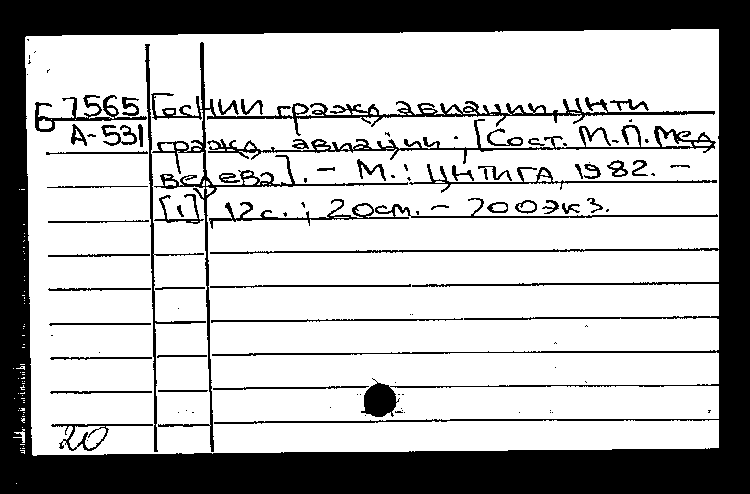 Б 7565 ГосНИИ гражд. авиации, ЦНТИ
А-531 гражд. авиации ; [Сост. М.П. Мед
ведева]. – М. : ЦНТИГА, 1982. –
[1], 12 с. ; 20 см. – 700 экз.
20